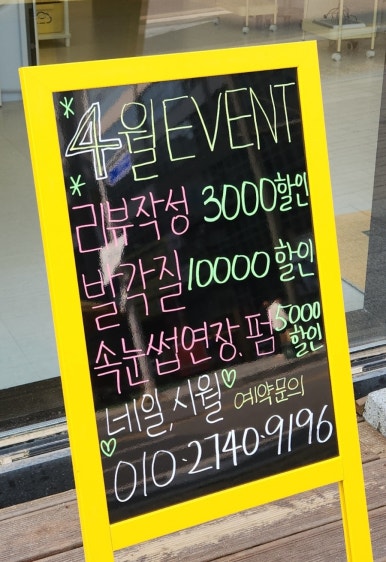 4월 EVENT
리뷰작성 3000할인
발각질 10000할인
속눈썹연장.펌 5000할인
네일,시월 예약문의
010·2740·9196